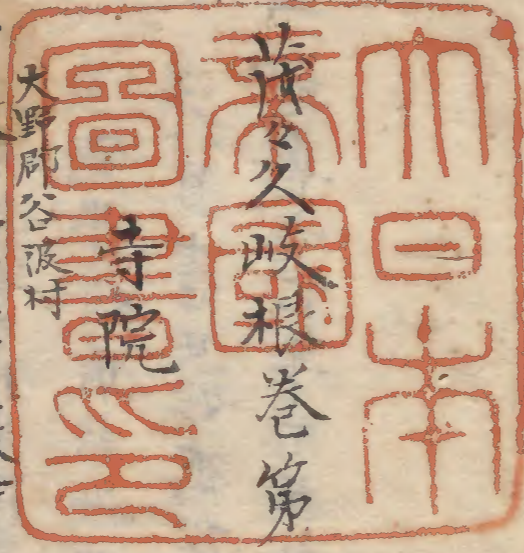 大日本
帝國
圖書印
茂々久岐根巻第
寺院
大野郡谷汲村